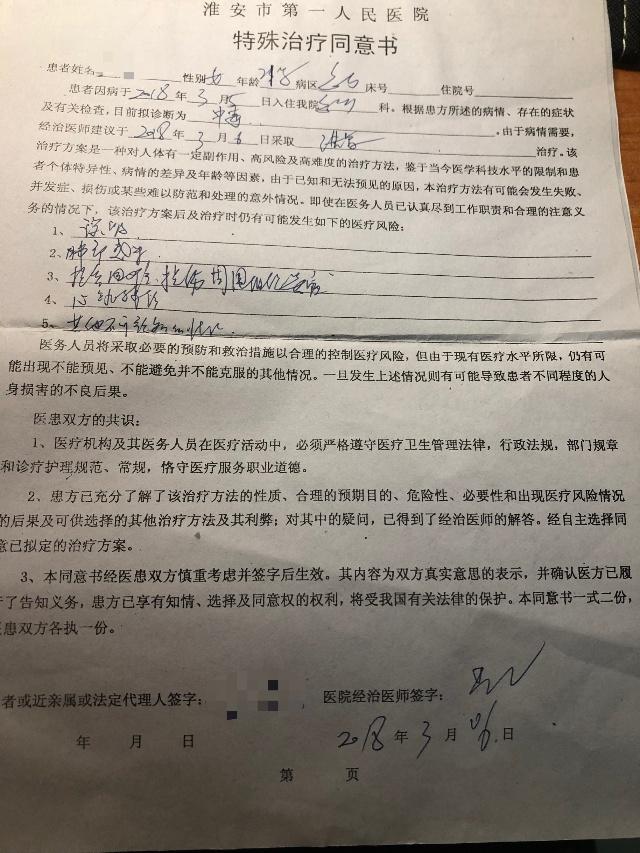 淮安市第一人民医院
特殊治疗同意书
患者姓名 性别女 年龄 病区 床号 住院号
患者因病于2018年3月 日入住我院 科。根据患方所述的病情、存在的症状
及有关检查,目前拟诊断为 。由于病情需要,
经治医师建议于2018年3月6日采取 治疗。该
治疗方案是一种对人体有一定副作用、高风险及高难度的治疗方法,鉴于当今医学科技水平的限制和患
者个体特异性、病情的差异及年龄等因素,由于已知和无法预见的原因,本治疗方法有可能会发生失败、
并发症、损伤或某些难以防范和处理的意外情况。即使在医务人员已认真尽到工作职责和合理的注意义
务的情况下,该治疗方案后及治疗时仍有可能发生如下的医疗风险:
1、
2、
3、
4、
5、
医务人员将采取必要的预防和救治措施以合理的控制医疗风险,但由于现有医疗水平所限,仍有可
能出现不能预见、不能避免并不能克服的其他情况。一旦发生上述情况则有可能导致患者不同程度的人
身损害的不良后果。
医患双方的共识:
1、医疗机构及其医务人员在医疗活动中,必须严格遵守医疗卫生管理法律,行政法规,部门规章
和诊疗护理规范、常规,恪守医疗服务职业道德。
2、患方已充分了解了该治疗方法的性质、合理的预期目的、危险性、必要性和出现医疗风险情况
的后果及可供选择的其他治疗方法及其利弊;对其中的疑问,已得到了经治医师的解答。经自主选择同
意已拟定的治疗方案。
3、本同意书经医患双方慎重考虑并签字后生效。其内容为双方真实意思的表示,并确认医方已履
行了告知义务,患方已享有知情、选择及同意权的权利,将受我国有关法律的保护。本同意书一式二份,
医患双方各执一份。
者或近亲属或法定代理人签字: 医院经治医师签字:
年 月 日 2018年3月 日
第 页